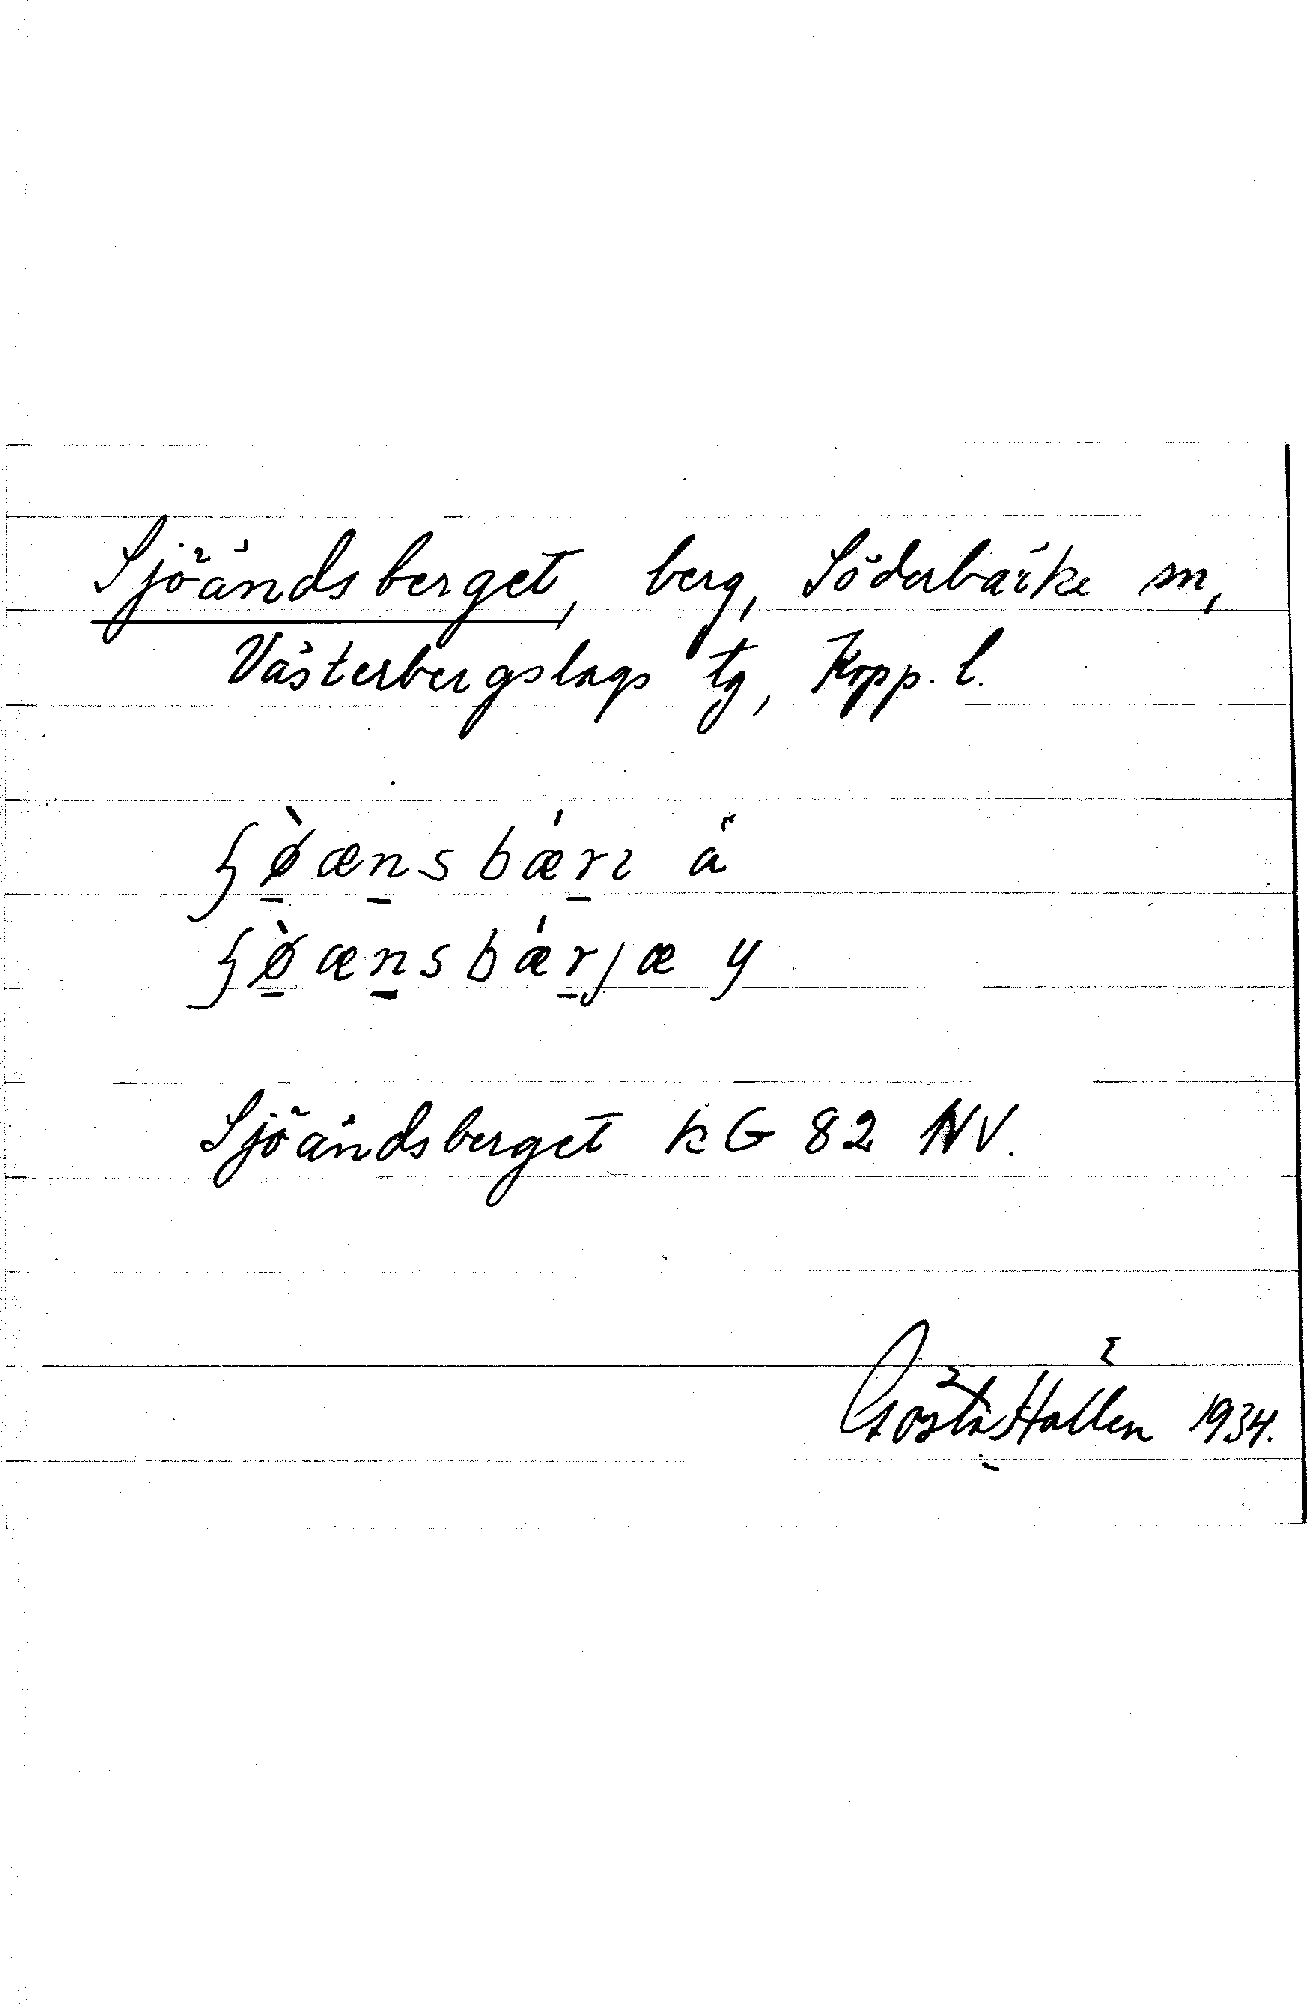 Sjöändsberget, berg, Söderbärke sn,
Västerbergslags tg, Kopp. l.
ʃø̀ænsbǽrɩ ä
ʃø̀ænsbǽrjæ y
Sjöändsberget kG 82 NV.
Gösta Hallén 1934.